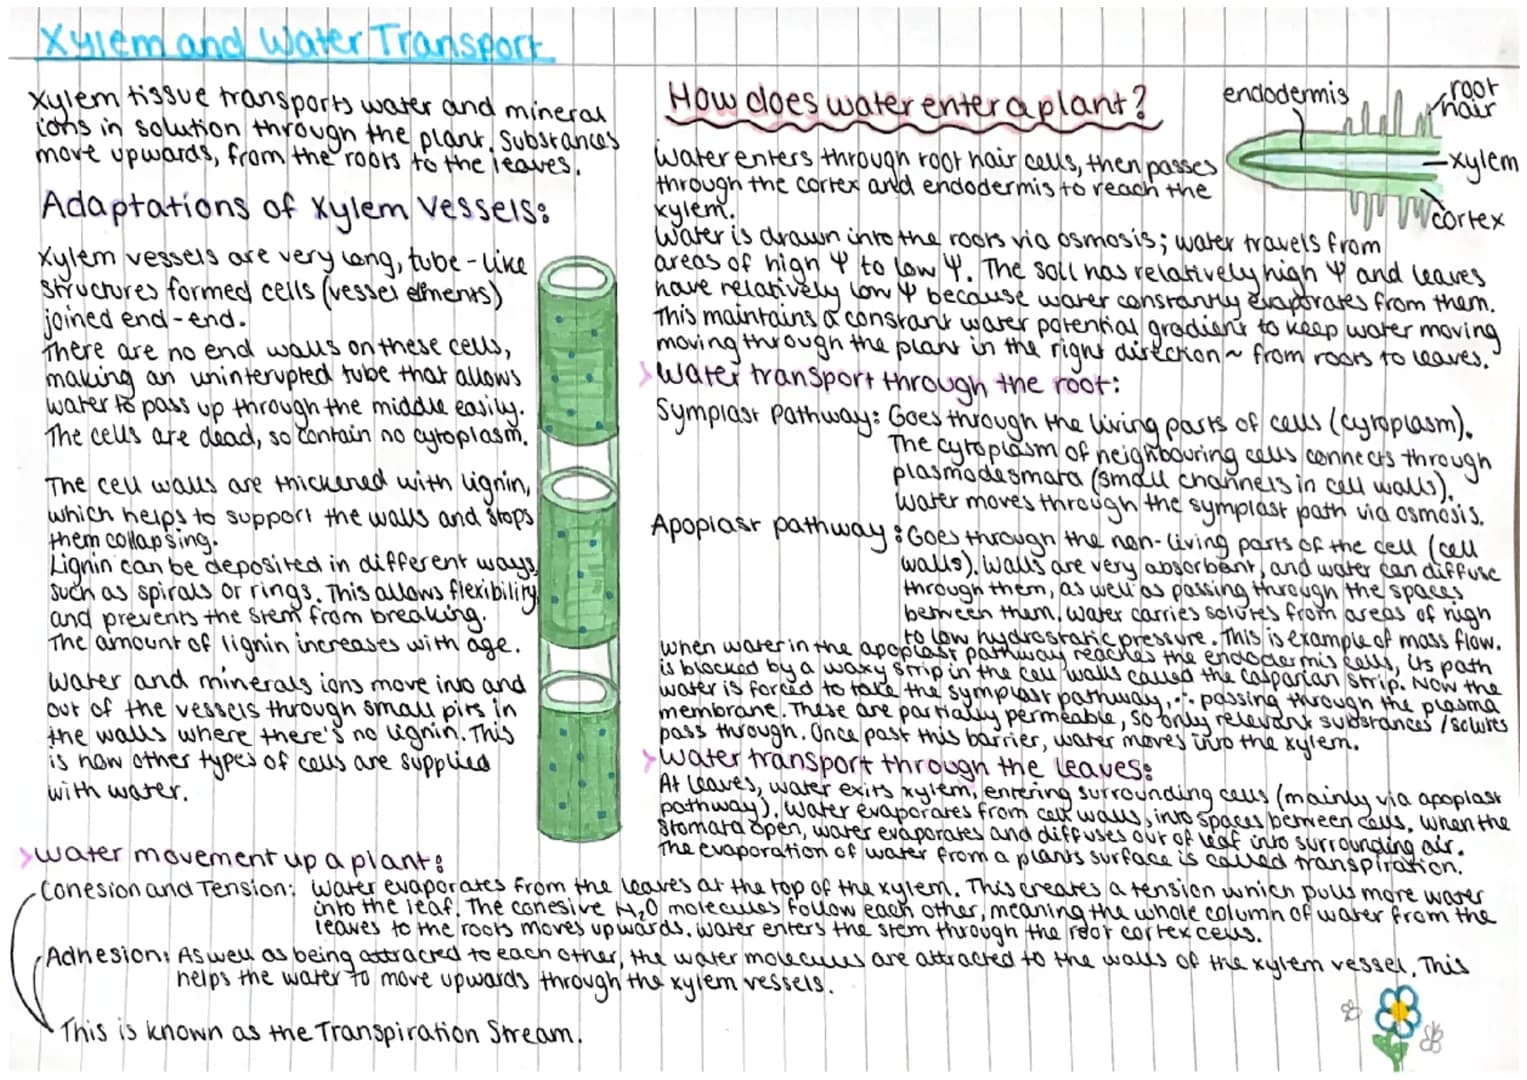 Xylem and Water Transport
Xylem tissue transports water and mineral
ions in solution through the plant. Substances
move upwards, from the roots to the leaves.
Adaptations of Xylem Vessels:
Xylem vessels are very long, tube-like
structures formed cells (vessel elments)
joined end-end.
There are no end walls on these cells,
making an uninterupted tube that allows
water to pass up through the middle easily.
The cells are dead, so contain no cytoplasm.
The cell walls are thickened with lignin,
which helps to support the walls and stops
them collapsing.
Lignin can be deposited in different ways,
such as spirals or rings. This allows flexibility
and prevents the stem from breaking.
The amount of lignin increases with age.
Water and minerals ions move into and
out of the vessels through small pits in
the walls where there's no lignin. This
is how other types of cells are supplied
with water.
How does water enter a plant?
endodermis
root
hair
xylem
cortex
Water enters through root hair cells, then passes
through the cortex and endodermis to reach the
xylem.
Water is drawn into the roots via osmosis; water travels from
areas of high Ψ to low Ψ. The soil has relatively high Ψ and leaves
have relatively low Ψ because water constantly evaporates from them.
This maintains a constant water potential gradient to keep water moving
moving through the plant in the right direction ~ from roots to leaves.
> Water transport through the root:
Symplast Pathway: Goes through the living parts of cells (cytoplasm).
The cytoplasm of neighbouring cells connects through
plasmodesmata (small channels in cell walls).
Water moves through the symplast path via osmosis.
Apoplast pathway: Goes through the non-living parts of the cell (cell
walls). Walls are very absorbent, and water can diffuse
through them, as well as passing through the spaces
between them. Water carries solutes from areas of high
to low hydrostatic pressure. This is example of mass flow.
When water in the apoplast pathway reaches the endodermis cells, its path
is blocked by a waxy strip in the cell walls called the Casparian strip. Now the
water is forced to take the symplast pathway, ∴ passing through the plasma
membrane. These are partially permeable, so only relevant substances / solutes
pass through. Once past this barrier, water moves into the xylem.
> Water transport through the leaves:
At leaves, water exits xylem, entering surrounding cells (mainly via apoplast
pathway). Water evaporates from cell walls, into spaces between cells. When the
stomata open, water evaporates and diffuses out of leaf into surrounding air.
The evaporation of water from a plants surface is called transpiration.
> Water movement up a plant:
Cohesion and Tension: Water evaporates from the leaves at the top of the xylem. This creates a tension which pulls more water
into the leaf. The cohesive H₂O molecules follow each other, meaning the whole column of water from the
leaves to the roots moves upwards. Water enters the stem through the root cortex cells.
Adhesion: As well as being attracted to each other, the water molecules are attracted to the walls of the xylem vessel. This
helps the water to move upwards through the xylem vessels.
This is known as the Transpiration Stream.